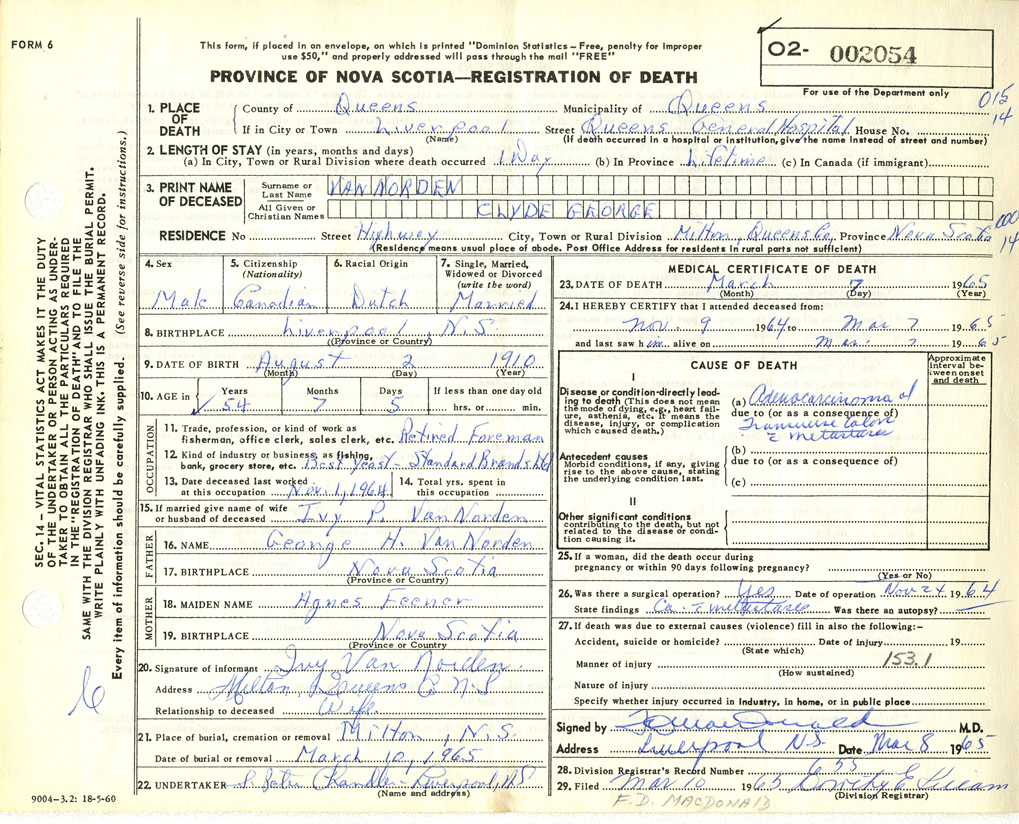 FORM 6
This form, if placed in an envelope, on which is printed "Dominion Statistics – Free, penalty for improper
use $50," and properly addressed will pass through the mail "FREE"
PROVINCE OF NOVA SCOTIA—REGISTRATION OF DEATH
O2- 002054
For use of the Department only
015
14
1. PLACE OF DEATH County of Queens Municipality of Queens
If in City or Town Liverpool Street Queens General Hospital House No.
(Name) (If death occurred in a hospital or institution, give the name instead of street and number)
2. LENGTH OF STAY (in years, months and days)
(a) In City, Town or Rural Division where death occurred 1 Day (b) In Province Lifetime (c) In Canada (if immigrant)
3. PRINT NAME OF DECEASED Surname or Last Name VAN NORDEN
All Given or Christian Names CLYDE GEORGE
000
14
RESIDENCE No Street Highway City, Town or Rural Division Milton, Queens Co, Province Nova Scotia
(Residence means usual place of abode. Post Office Address for residents in rural parts not sufficient)
4. Sex Male
5. Citizenship (Nationality) Canadian
6. Racial Origin Dutch
7. Single, Married, Widowed or Divorced (write the word) Married
8. BIRTHPLACE Liverpool, N.S.
((Province or Country)
9. DATE OF BIRTH August 2 1910
(Month) (Day) (Year)
10. AGE in Years Months Days If less than one day old
54 7 5 hrs. or min.
OCCUPATION
11. Trade, profession, or kind of work as
fisherman, office clerk, sales clerk, etc. Retired Foreman
12. Kind of industry or business, as fishing,
bank, grocery store, etc. Best Yeast - Standard Brands Ltd
13. Date deceased last worked
at this occupation Nov 1, 1964
14. Total yrs. spent in
this occupation
15. If married give name of wife
or husband of deceased Ivy P. Van Norden
FATHER
16. NAME George H. Van Norden
17. BIRTHPLACE Nova Scotia
(Province or Country)
MOTHER
18. MAIDEN NAME Agnes Feener
19. BIRTHPLACE Nova Scotia
(Province or Country)
20. Signature of informant Ivy Van Norden
Address Milton, Queens Co N.S
Relationship to deceased Wife
21. Place of burial, cremation or removal Milton, N.S.
Date of burial or removal March 10, 1965
22. UNDERTAKER Chandler - Liverpool, N.S
(Name and address)
9004–3.2: 18-5-60
MEDICAL CERTIFICATE OF DEATH
23. DATE OF DEATH March 7 1965
(Month) (Day) (Year)
24. I HEREBY CERTIFY that I attended deceased from:
Nov. 9 1964 to Mar 7 1965
and last saw him alive on Mar 7 1965
CAUSE OF DEATH
Approximate interval between onset and death
I
Disease or condition directly leading to death (This does not mean the mode of dying, e.g., heart failure, asthenia, etc. It means the disease, injury, or complication which caused death.)
(a) Adenocarcinoma of
due to (or as a consequence of)
Transverse Colon
c̄ metastases
Antecedent causes
Morbid conditions, if any, giving rise to the above cause, stating the underlying condition last.
(b)
due to (or as a consequence of)
(c)
II
Other significant conditions
contributing to the death, but not related to the disease or condition causing it.
25. If a woman, did the death occur during
pregnancy or within 90 days following pregnancy?
(Yes or No)
26. Was there a surgical operation? Yes Date of operation Nov 24 1964
State findings Ca. c̄ metastases Was there an autopsy?
27. If death was due to external causes (violence) fill in also the following:–
Accident, suicide or homicide? Date of injury 19
(State which)
Manner of injury 153.1
(How sustained)
Nature of injury
Specify whether injury occurred in Industry, in home, or in public place
Signed by M.D.
Address Liverpool N.S. Date Mar 8 1965
28. Division Registrar's Record Number 655
29. Filed Mar 10 1965 Dorothy E
(Division Registrar)
F. D. MACDONALD
SEC. 14 – VITAL STATISTICS ACT MAKES IT THE DUTY
OF THE UNDERTAKER OR PERSON ACTING AS UNDER-
TAKER TO OBTAIN ALL THE PARTICULARS REQUIRED
IN THE "REGISTRATION OF DEATH" AND TO FILE THE
SAME WITH THE DIVISION REGISTRAR WHO SHALL ISSUE THE BURIAL PERMIT.
WRITE PLAINLY WITH UNFADING INK. THIS IS A PERMANENT RECORD.
Every item of information should be carefully supplied. (See reverse side for instructions.)